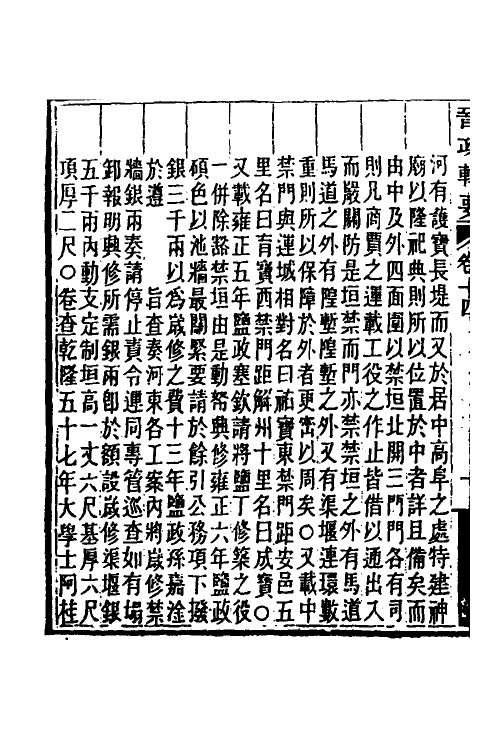 晉政輯要 卷十四
河有護寶長堤而又於居中高阜之處特建神
廟以隆祀典則所以位置於中者詳且備矣而
由中及外四面圍以禁垣北開三門門各有司
則凡商賈之運載工役之作止皆借以通出入
而嚴關防是垣禁而門亦禁禁垣之外有馬道
馬道之外有隍塹隍塹之外又有渠堰連環數
重則所以保障於外者更密以周矣○又載中
禁門與運城相對名曰祐寶東禁門距安邑五
里名曰育寶西禁門距解州十里名曰成寶○
又載雍正五年鹽政塞欽請將鹽丁修築之役
一併除豁禁垣由是動帑興修雍正六年鹽政
碩色以池牆最關緊要請於餘引公務項下撥
銀三千兩以為歲修之費十三年鹽政孫嘉淦
於遵　　旨查奏河東各工案內將歲修禁
牆銀兩奏請停止責令運同專管巡查如有塌
卸報明興修所需銀兩卽於額設歲修渠堰銀
五千兩內動支定制垣高一丈六尺基厚六尺
項厚二尺○卷查乾隆五十七年大學士阿桂